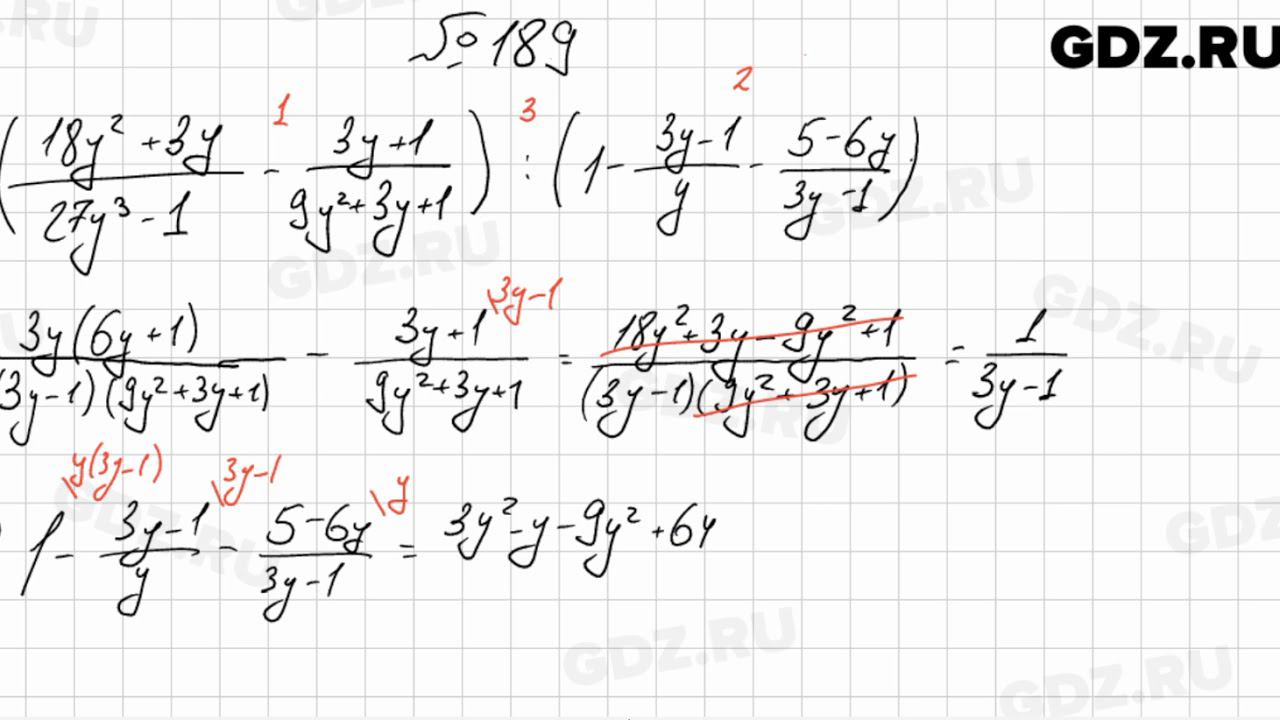 GDZ.RU
№ 189
1 3 2
((18y² + 3y)/(27y³ - 1) - (3y+1)/(9y²+3y+1)) : (1 - (3y-1)/y - (5-6y)/(3y-1))
3y(6y+1)/((3y-1)(9y²+3y+1)) - (3y+1)/(9y²+3y+1) \3y-1 = (18y²+3y-9y²+1)/((3y-1)(9y²+3y+1)) = 1/(3y-1)
1 \y(3y-1) - (3y-1)/y \3y-1 - (5-6y)/(3y-1) \y = 3y²-y-9y²+6y